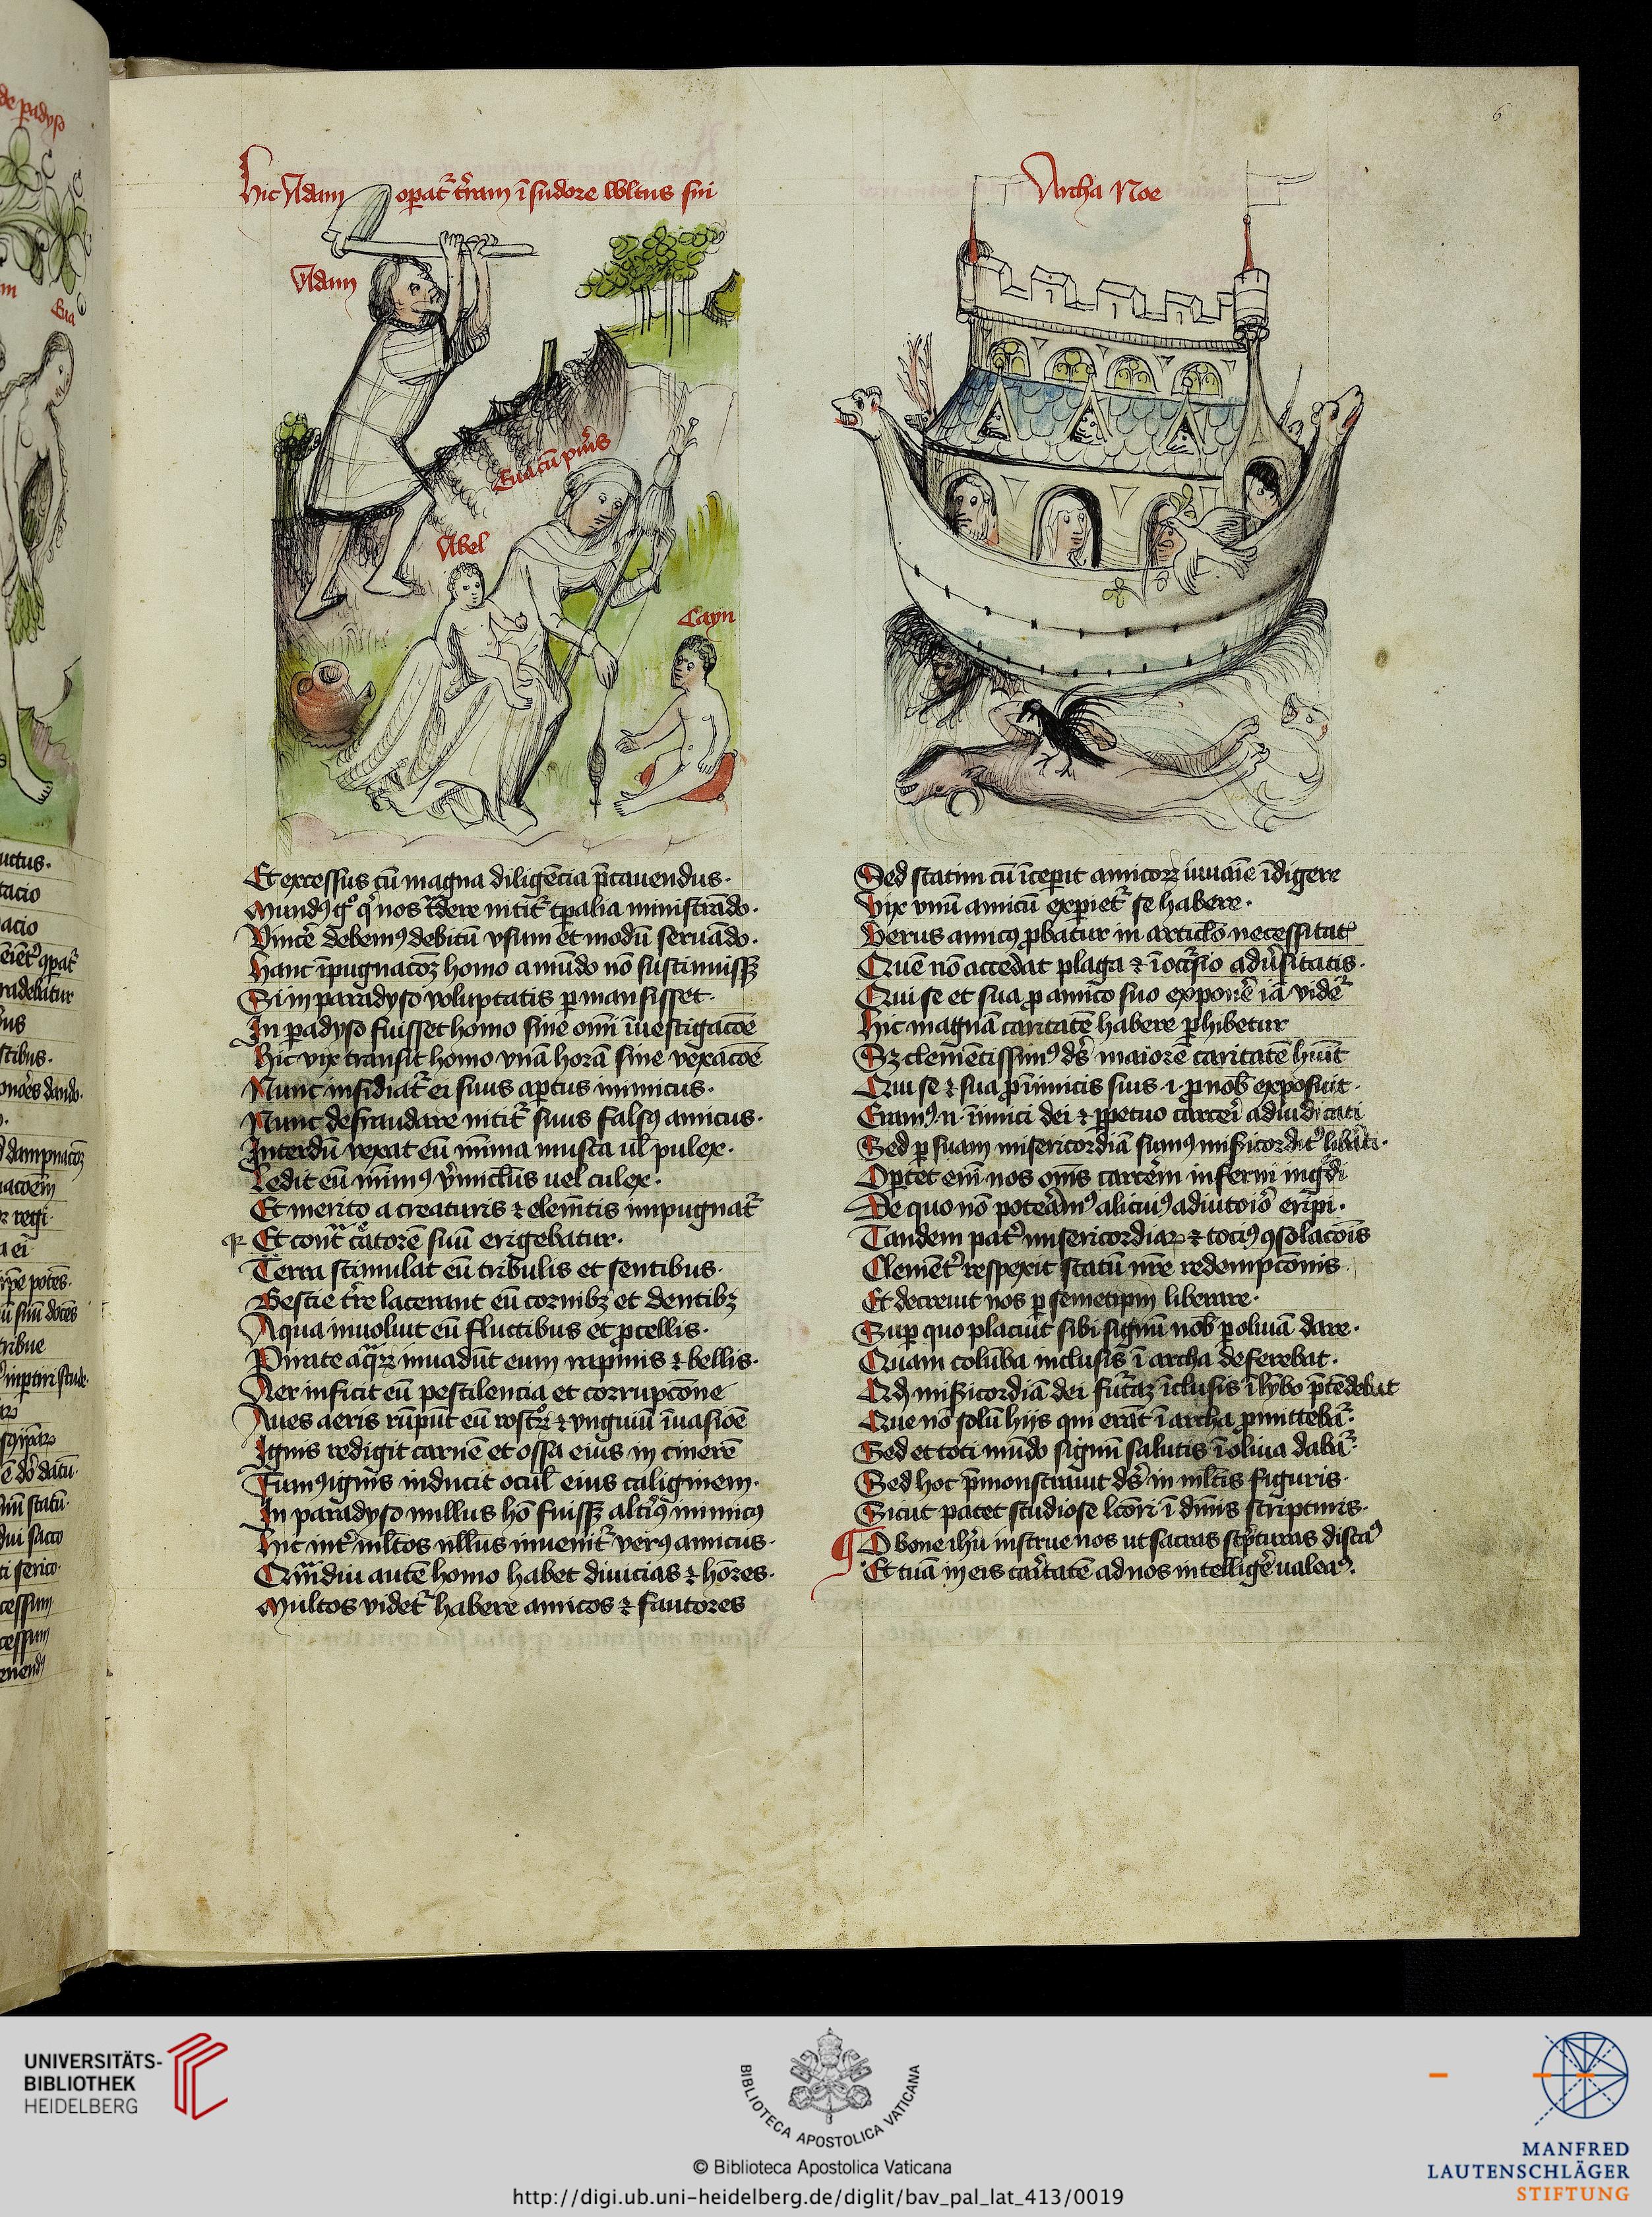 6
Hic Adam opat̄ t̄ram ī sudore wltus sui
Adam
Eua cū pu͛is
Abel
Cayn
Et excessus cū magna diligēcia p̄cauendus·
Mundꝰ gͦ qͥ nos t͛dere nitit͛ tꝑalia ministrādo·
Vincē debemꝰ debitū vsum et modū seruādo·
Hanc īpugnacōꝫ homo a mūdo nō sustinuissꝫ
Si in paradyso voluptatis ꝑmansisset·
In ꝑadyso fuisset homo sine om̄i īuestigacōe
Hic vix transit homo vnā horā sine vexacōe
Nunc insidiat͛ ei suus aꝑtus inimicus·
Nunc defraudare nitit͛ suus falsꝰ amicus·
Interdū vexat eū mīma musca ul̄ pulex·
Ledit eū mīmꝰ v͛micl̄us uel culex·
Et merito a creaturis ⁊ elem̄tis impugnat͛
qꝛ Et cont͛ c͛atorē suū erigebatur·
Terra stimulat eū tribulis et sentibus·
Bestie t͛re lacerant eū cornibꝫ et dentibꝫ
Aqua inuoluit eū fluctibus et ꝓcellis·
Pirate aq͛ꝝ inuadūt eum rapinis ⁊ bellis·
Aer inficit eū pestilencia et corrupcōne
Aues aeris rūpūt eū rostroꝝ ⁊ vnguiū īuasiōe
Ignis redigit carnē et ossa eius in cinerē
Fumꝰ ignis inducit ocul̄ eius caliginem·
In paradyso nullus hō fuissꝫ alt͛iꝰ inimicꝰ
Hic int͛ ml̄tos nl̄lus inuenit͛ verꝰ amicus·
Qm͛diu autē homo habet diuicias ⁊ hōres·
Multos videt͛ habere amicos ⁊ fautores
Archa Noe
Sed statim cū īceperit amicoꝝ iuuaīe īdigere
Vix vnū amicū exꝑiet͛ se habere·
Verus amicꝰ ꝓbatur in articl̄o necessitatꝭ
Quē nō accedat plaga ⁊ īoc͛sio adu͛sitatis·
Qui se et sua ꝓ amico suo exponē iā videt͛
Hic magnā caritatē habere ꝑhibetur
Sꝫ clemētissimꝰ ds̄ maiorē caritatē hūit
Qui se ⁊ sua ꝓ inimicis suis ·i· ꝓ nob̄ exposuit·
Eramꝰ ·n· īimici dei ⁊ ꝑpetuo carceri adiudicati
Sed ꝑ suam misericordiā sumꝰ mīs͛icordit͛ libāti·
Optet em̄ nos om̄s carcēm inferni ing͛di
De quo nō poteāmꝰ alicuiꝰ adiutoiō eripi·
Tandem pat͛ misericordiaꝝ ⁊ tociꝰ ꝯsolacōis
Clemēt͛ respexit statū nr̄e redempcōnis·
Et decreuit nos ꝑ semetipm̄ liberare·
Suꝑ quo placuit sibi signū nob̄ ꝑ oliuā dare·
Quam colūba inclusis ī archa deferebat·
Qꝫ mīs͛icordiā dei fut͛aꝫ īclusis ī lȳbo p̄tēdebat
Que nō solū hijs qui erāt ī archa ꝓmittebat͛·
Sed et toti mūdo signū salutis ī oliua dabat͛·
Sed hoc p̄monstrauit ds̄ in ml̄tis figuris·
Sicut patet studiose lc̄ori ī diuīs scripturis·
¶ O bone ihū instrue nos ut sacras sc͛pturas discaꝰ
Et tuā in eis caritatē ad nos intellig͛e ualeaꝰ·
de ꝑadyso
Eua
UNIVERSITÄTS-
BIBLIOTHEK
HEIDELBERG
BIBLIOTECA APOSTOLICA VATICANA
© Biblioteca Apostolica Vaticana
http://digi.ub.uni-heidelberg.de/diglit/bav_pal_lat_413/0019
MANFRED
LAUTENSCHLÄGER
STIFTUNG